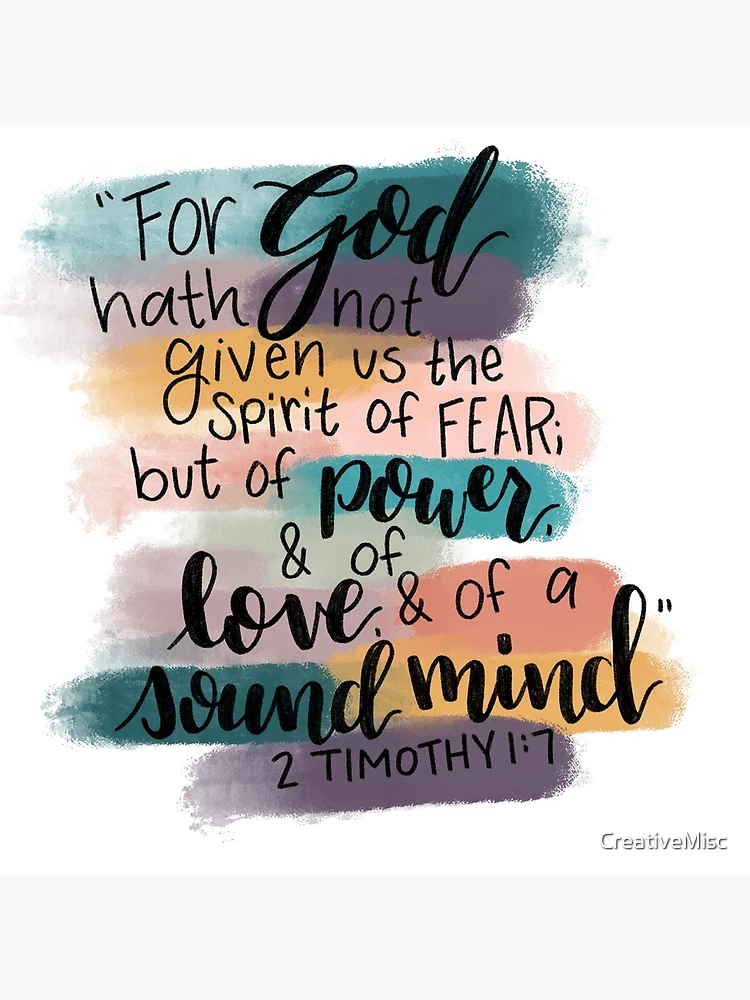 "For God
hath not
given us the
spirit of FEAR;
but of power,
& of
love, & of a
sound mind"
2 TIMOTHY 1:7
CreativeMisc